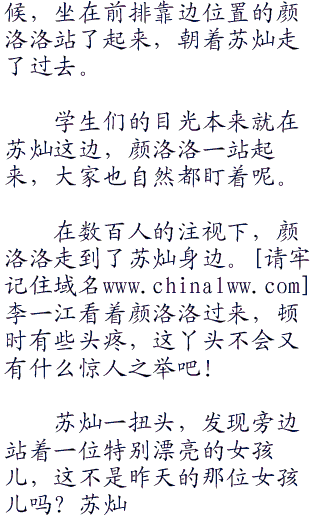 候，坐在前排靠边位置的颜
洛洛站了起来，朝着苏灿走
了过去。
学生们的目光本来就在
苏灿这边，颜洛洛一站起
来，大家也自然都盯着呢。
在数百人的注视下，颜
洛洛走到了苏灿身边。[请牢
记住域名www.china1ww.com]
李一江看着颜洛洛过来，顿
时有些头疼，这丫头不会又
有什么惊人之举吧！
苏灿一扭头，发现旁边
站着一位特别漂亮的女孩
儿，这不是昨天的那位女孩
儿吗？苏灿